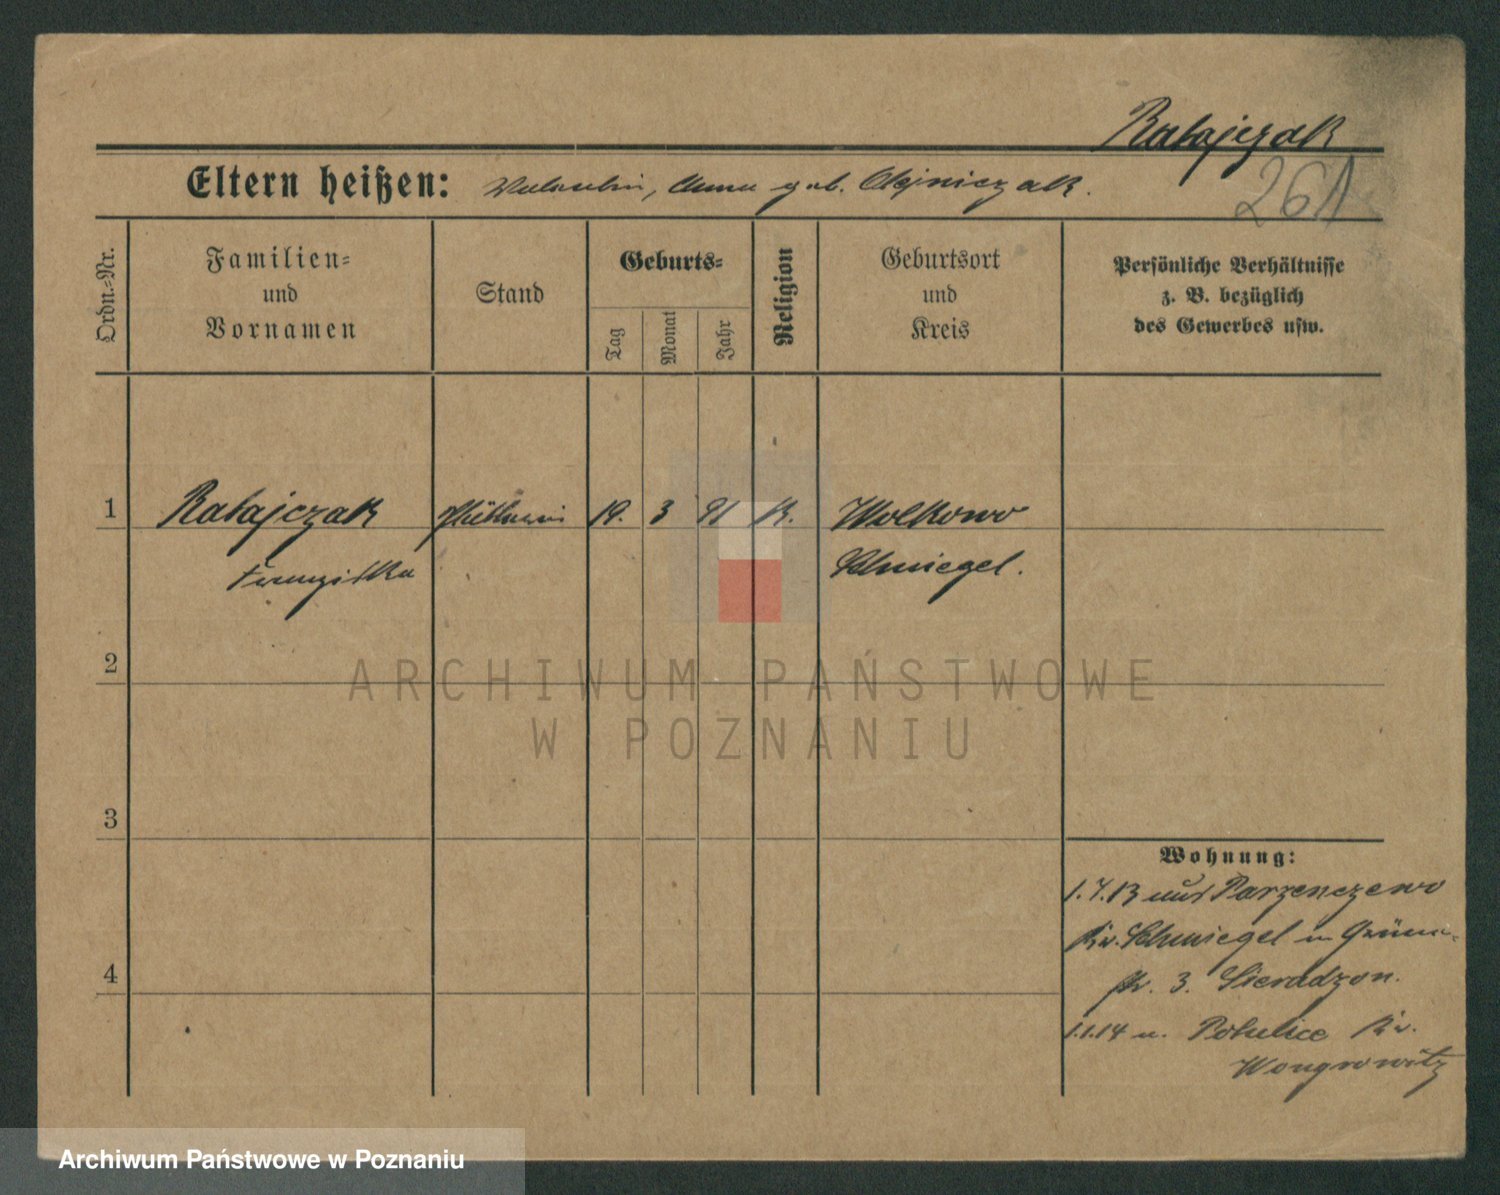 Ratajczak
261
Eltern heißen: Valentin, Anna geb. Olejniczak.
Ordn.-Nr.
Familien-
und
Vornamen
Stand
Geburts-
Tag
Monat
Jahr
Religion
Geburtsort
und
Kreis
Persönliche Verhältnisse
z. B. bezüglich
des Gewerbes usw.
1 Ratajczak 19. 3 91 K. Wolkowo
Franziska Schmiegel.
2
ARCHIWUM PAŃSTWOWE
W POZNANIU
3
Wohnung:
1.7.13 aus Parzenczewo
Kr. Schmiegel n Grüne
str. 3. Sieradzon.
4
1.1.14 n. Potulice Kr.
Wongrowitz
Archiwum Państwowe w Poznaniu